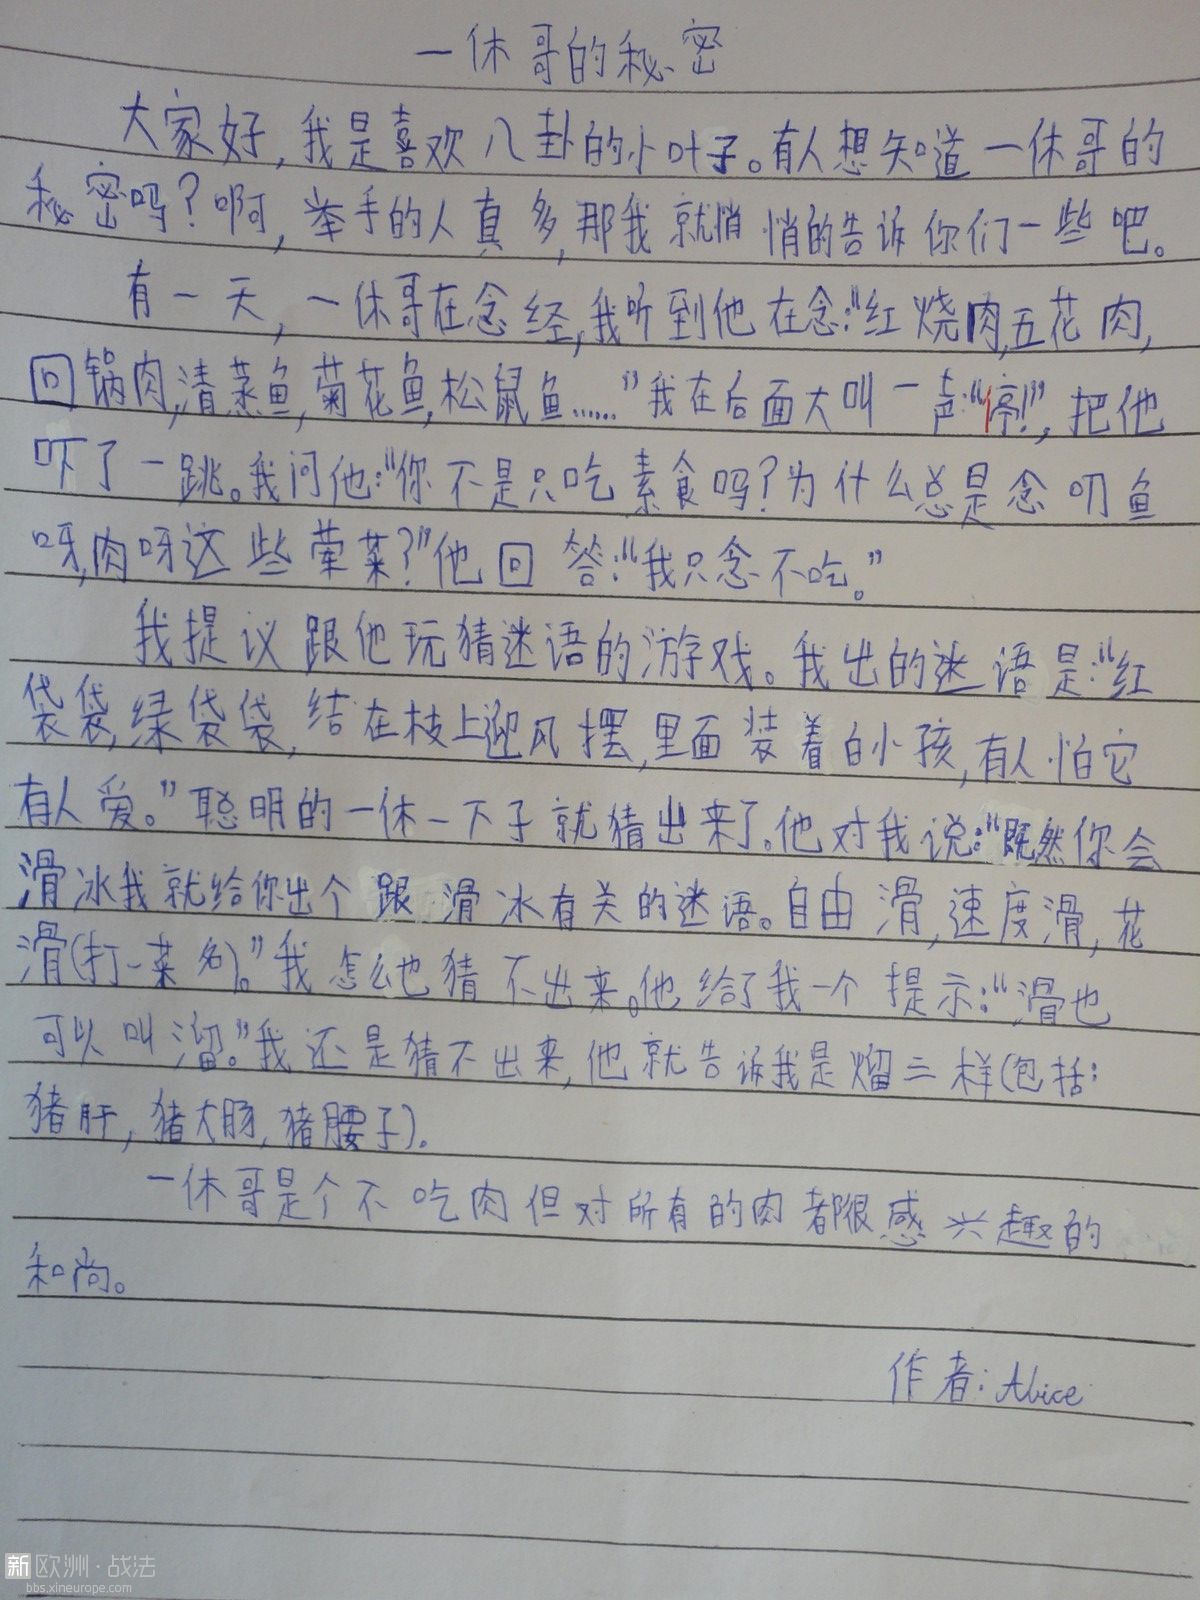 一休哥的秘密
大家好,我是喜欢八卦的小叶子。有人想知道一休哥的
秘密吗?啊,举手的人真多,那我就悄悄的告诉你们一些吧。
有一天,一休哥在念经,我听到他在念:“红烧肉,五花肉,
回锅肉,清蒸鱼,菊花鱼,松鼠鱼……”我在后面大叫一声:“停!”,把他
吓了一跳。我问他:“你不是只吃素食吗?为什么总是念叨鱼
呀,肉呀这些荤菜?”他回答:“我只念不吃。”
我提议跟他玩猜迷语的游戏。我出的迷语是:“红
袋袋,绿袋袋,结在枝上迎风摆,里面装着白小孩,有人怕它
有人爱。”聪明的一休一下子就猜出来了。他对我说:“既然你会
滑冰我就给你出个跟滑冰有关的迷语。自由滑,速度滑,花
滑(打一菜名)。”我怎么也猜不出来。他给了我一个提示:“滑也
可以叫溜。”我还是猜不出来,他就告诉我是熘三样(包括:
猪肝,猪大肠,猪腰子)。
一休哥是个不吃肉但对所有的肉都很感兴趣的
和尚。
作者:Alice
新欧洲·战法
bbs.xineurope.com